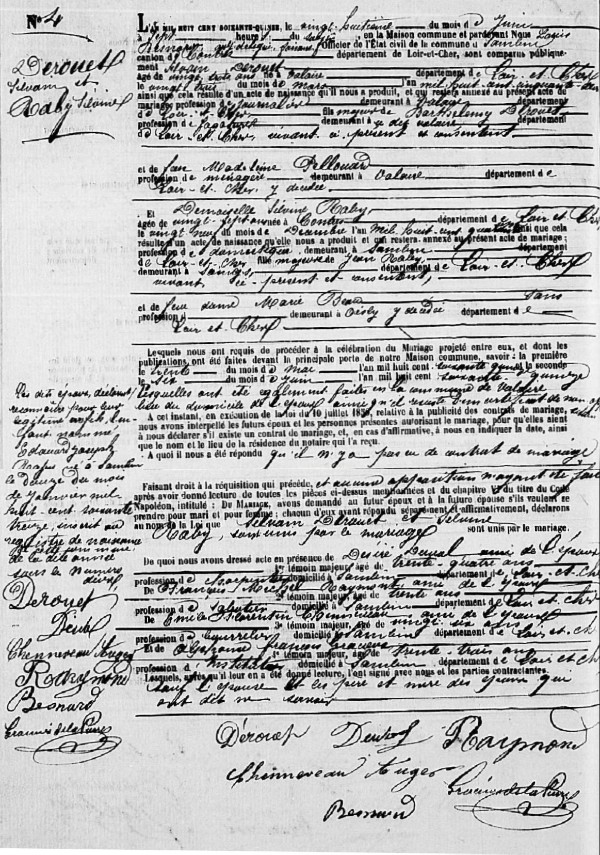 No 4
Derouet
Silvain
et
Raby Silvine
L'AN MIL HUIT CENT SOIXANTE-QUINZE, le vingt huitième du mois de Juin
à sept heures du en la Maison commune et pardevant Nous Louis
Besnard Officier de l'État civil de la commune de Sambin
canton de Contres département de Loir-et-Cher, sont comparus publique-
ment Silvain Derouet
âgé de vingt trois ans né à Valaire département de Loir et Cher
le vingt trois du mois de Mars an mil huit cent cinquante-deux
ainsi que cela résulte d'un acte de naissance qu'il nous a produit, et qui restera annexé au présent acte de
mariage; profession de journalier demeurant à Valaire département
de Loir-et-Cher fils majeur de Barthelemy Derouet
profession de demeurant à dit Valaire département de
Loir-et-Cher vivant ci présent et consentant
et de feue Madeleine Pellouard
profession de ménagère demeurant à Valaire département de
Loir-et-Cher, y décédée
Et Demoiselle Silvine Raby
âgée de vingt sept ans née à Contres département de Loir et Cher
le vingt neuf du mois de Décembre l'an Mil huit cent quarante ainsi que cela
résulte d'un acte de naissance qu'elle nous a produit et qui restera annexé au présent acte de mariage;
profession de domestique, demeurant à Sambin département
de Loir-et-Cher fille majeure de Jean Raby
demeurant à département de Loir-et-Cher
vivant, ci-présent et consentant,
et de feue dame Marie Beau sans
profession demeurant à Oisly y décédée département de
Loir et Cher
Lesquels nous ont requis de procéder à la célébration du Mariage projeté entre eux, et dont les
publications ont été faites devant la principale porte de notre Maison commune, savoir: la première
le trente du mois de Mai l'an mil huit cent soixante quinze la seconde
le six du mois de Juin l'an mil huit cent soixante quinze
lesquelles ont été également faites en la commune de Valaire
lieu du domicile de l'époux ainsi qu'il résulte d'un certificat de non opposition
A cet instant, en exécution de la loi du 10 juillet 1850, relative à la publicité des contrats de mariage,
nous avons interpellé les futurs époux et les personnes présentes autorisant le mariage, pour qu'elles aient
à nous déclarer s'il existe un contrat de mariage, et, en cas d'affirmative, à nous en indiquer la date, ainsi
que le nom et le lieu de la résidence du notaire qui l'a reçu.
A quoi il nous a été répondu qu'il n'y a pas eu de contrat de mariage
Faisant droit à la réquisition qui précède, et aucune opposition n'ayant été faite
après avoir donné lecture de toutes les pièces ci-dessus mentionnées et du chapitre VI du titre du Code
Napoléon, intitulé: DU MARIAGE, avons demandé au futur époux et à la future épouse s'ils veulent se
prendre pour mari et pour femme; chacun d'eux ayant répondu séparément et affirmativement, déclarons
au nom de la Loi que Silvain Derouet et Silvine
Raby, sont unis par le mariage sont unis par le mariage.
De quoi nous avons dressé acte en présence de Désiré Duval ami de l'époux
1er témoin majeur, âgé de trente-quatre ans
profession de charpentier domicilié à Sambin département de Loir-et-Cher
De François Michel Raymond ami de l'époux
2e témoin majeur, âgé de trente ans
profession de domicilié à Sambin département de Loir et Cher
De Emile Florentin Chenneveau ami de l'époux
3e témoin majeur, âgé de vingt six ans
profession de bourrelier domicilié à Sambin département de Loir et Cher
Et de Alphonse François
4e témoin majeur, âgé de trente-trois ans
profession d'instituteur domicilié à Sambin département de Loir et Cher
Lesquels, après qu'il leur en a été donné lecture, l'ont signé avec nous et les parties contractantes.
sauf l'épouse et les père et mère des époux qui
ont dit ne savoir
Derouet Raymond
Chenneveau Auger
Besnard
Les dits époux, déclarent
reconnaître pour leur
légitime
enfant nommé
Edouard Joseph
né à Sambin
le douze du mois
de Janvier mil
huit cent soixante
treize, inscrit au
registre de naissance
de cette commune
de la dite année
sous le numéro
Derouet
Chenneveau Auger
Raymond
Besnard